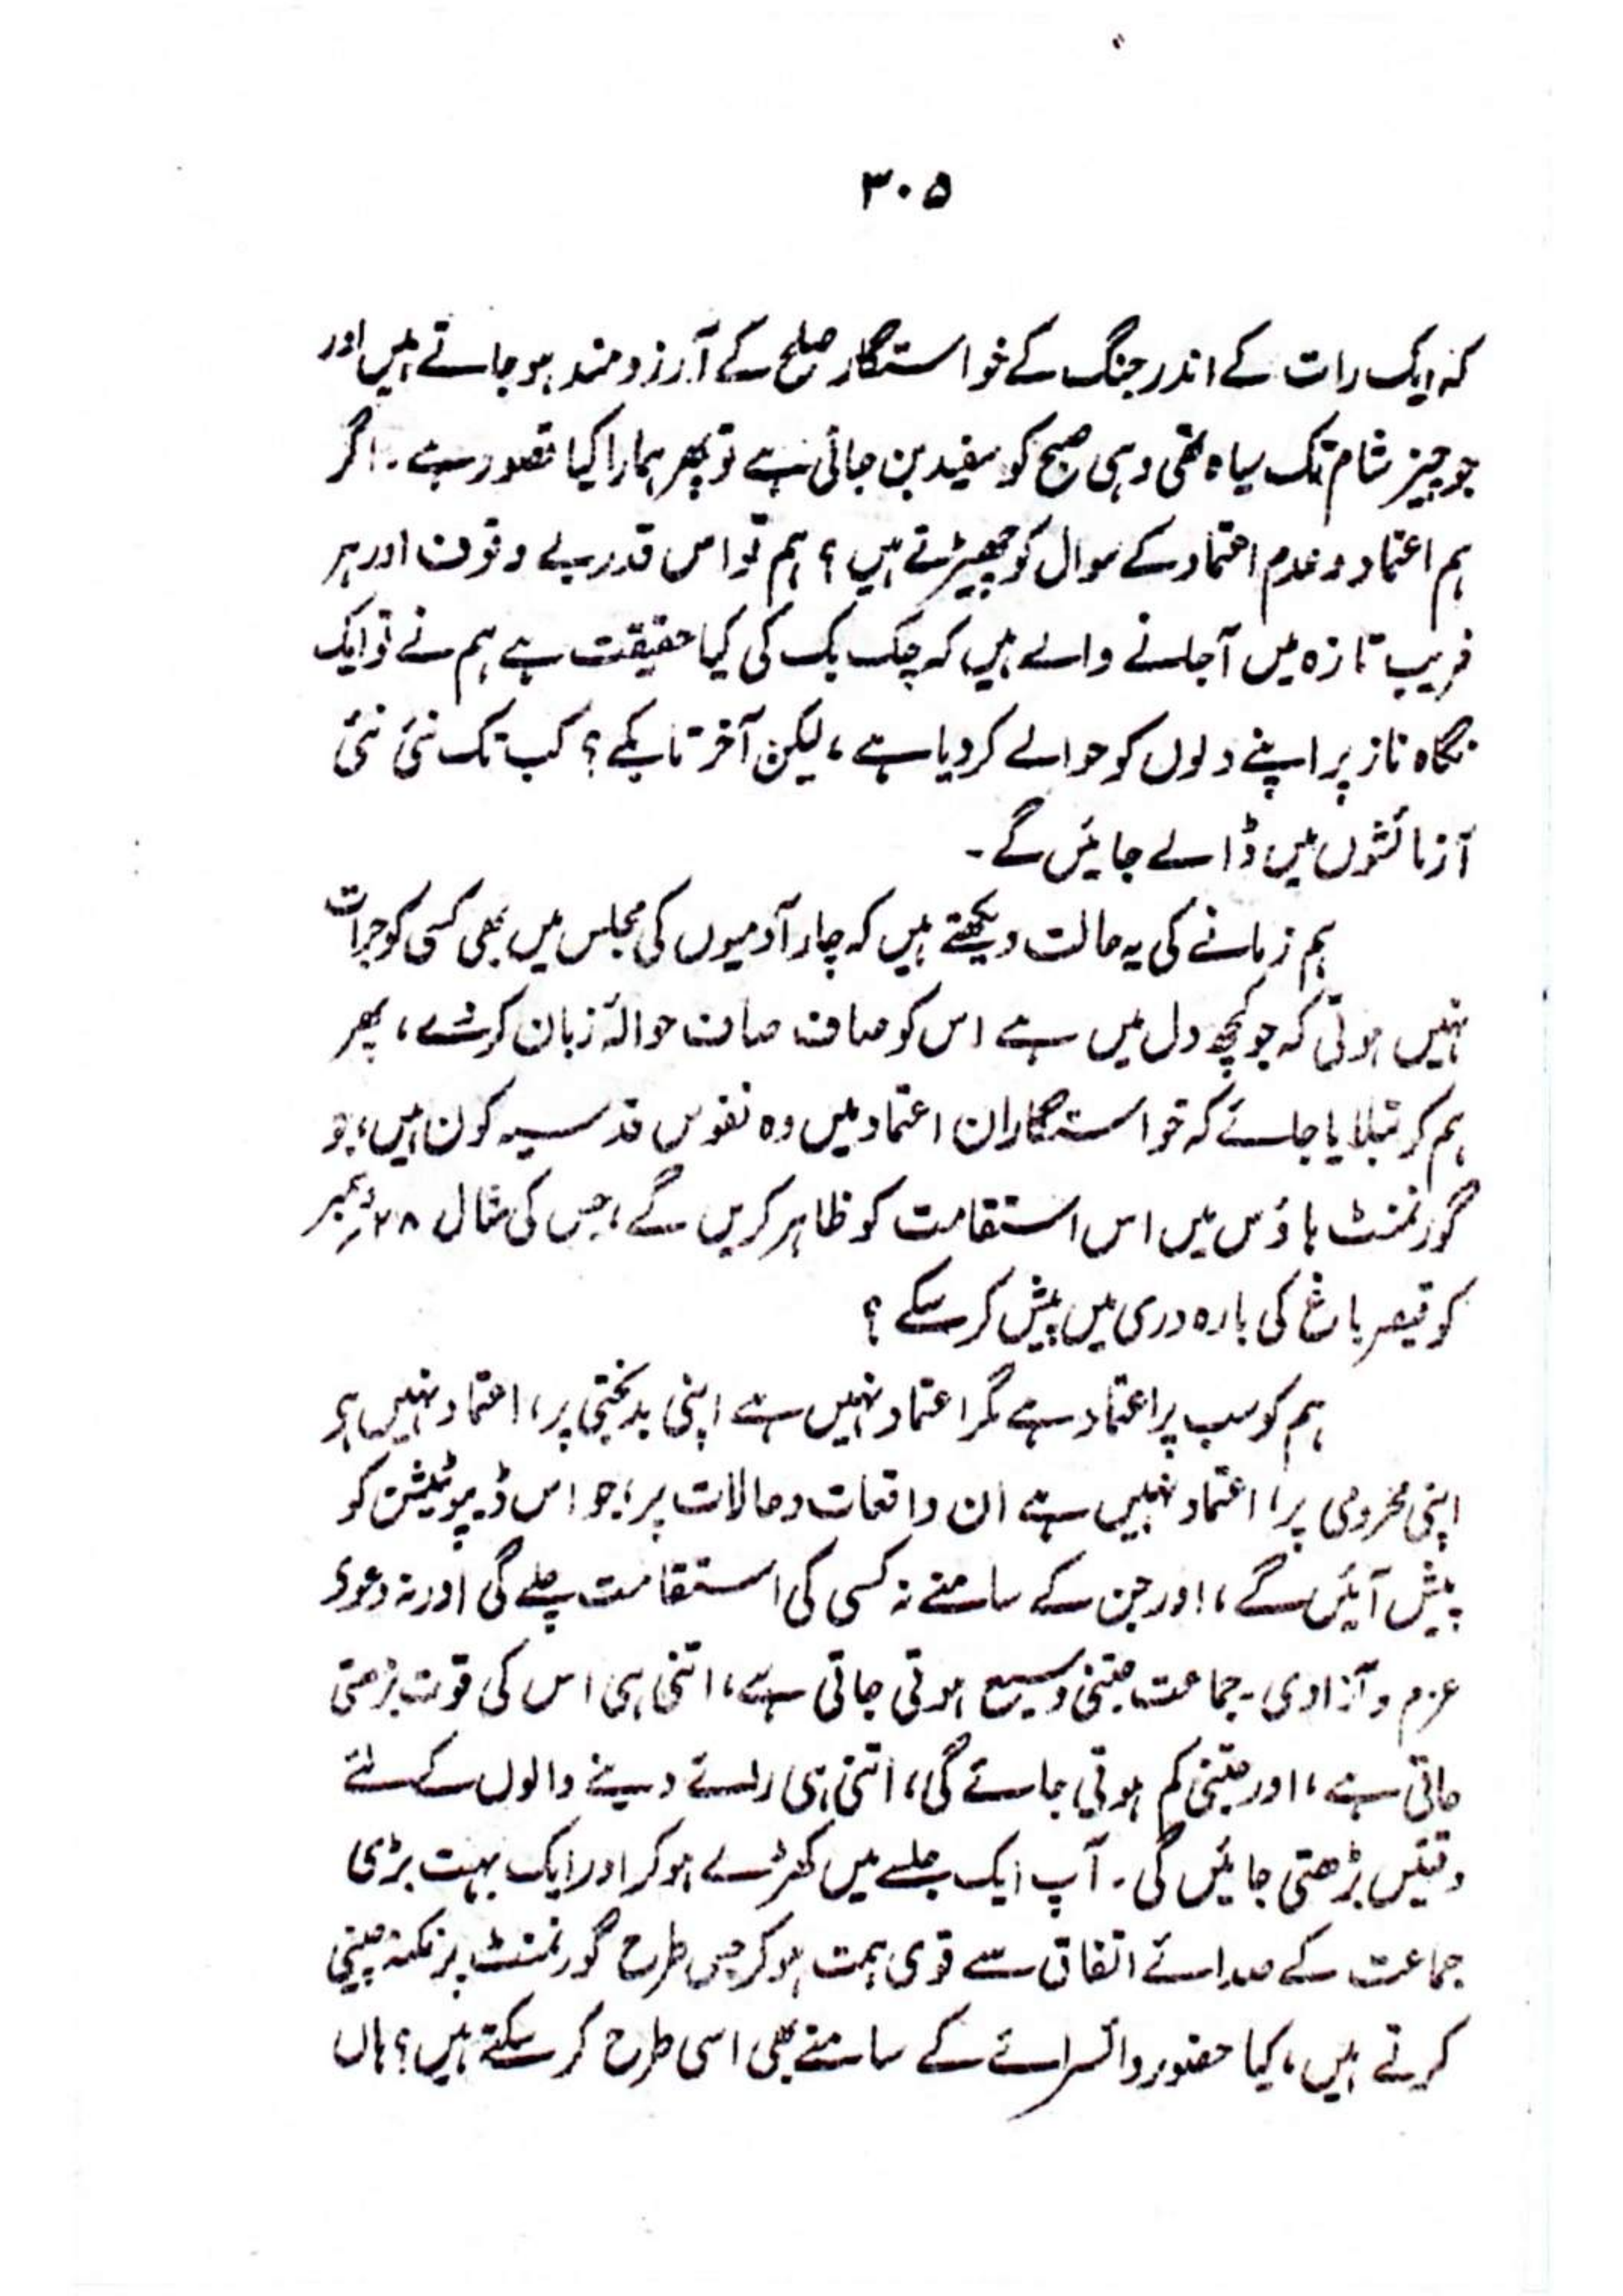 ۳۰۵
کہ ایک رات کے اندر جنگ کے خواستگار صلح کے آرزومند ہو جاتے ہیں اور
جو چیز شام تک سیاہ تھی وہی صبح کو سفید بن جاتی ہے تو پھر ہمارا کیا قصور ہے۔ اگر
ہم اعتماد و عدم اعتماد کے سوال کو چھیڑتے ہیں؟ ہم تو اس قدر بے وقوف اور ہر
فریب تازہ میں آجانے والے ہیں کہ چک بک کی کیا حقیقت ہے ہم نے تو ایک
نگاہ ناز پر اپنے دلوں کو حوالے کردیا ہے، لیکن آخر تا بکے؟ کب تک نئی نئی
آزمائشوں میں ڈالے جائیں گے۔
ہم زمانے کی یہ حالت دیکھتے ہیں کہ چار آدمیوں کی مجلس میں بھی کسی کو جرأت
نہیں ہوتی کہ جو کچھ دل میں ہے اس کو صاف صاف حوالۂ زبان کرے، پھر
ہم کو بتلایا جائے کہ خواستگاران اعتماد میں وہ نفوس قدسیہ کون ہیں، جو
گورنمنٹ ہاؤس میں اس استقامت کو ظاہر کریں گے، جس کی مثال ۲۸ دسمبر
کو قیصر باغ کی بارہ دری میں پیش کرسکے؟
ہم کو سب پر اعتماد ہے مگر اعتماد نہیں ہے اپنی بدبختی پر، اعتماد نہیں ہے
اپنی محرومی پر، اعتماد نہیں ہے ان واقعات و حالات پر، جو اس ڈیپوٹیشن کو
پیش آئیں گے، اور جن کے سامنے نہ کسی کی استقامت چلے گی اور نہ دعوٰی
عزم و آزادی۔ جماعت جتنی وسیع ہوتی جاتی ہے، اتنی ہی اس کی قوت بڑھتی
جاتی ہے، اور جتنی کم ہوتی جائے گی، اتنی ہی رائے دینے والوں کے لئے
دقتیں بڑھتی جائیں گی۔ آپ ایک جلسے میں کھڑے ہوکر اور ایک بہت بڑی
جماعت کے صدائے اتفاق سے قوی ہمت ہوکر جس طرح گورنمنٹ پر نکتہ چینی
کرتے ہیں، کیا حضور وائسرائے کے سامنے بھی اسی طرح کرسکتے ہیں؟ ہاں